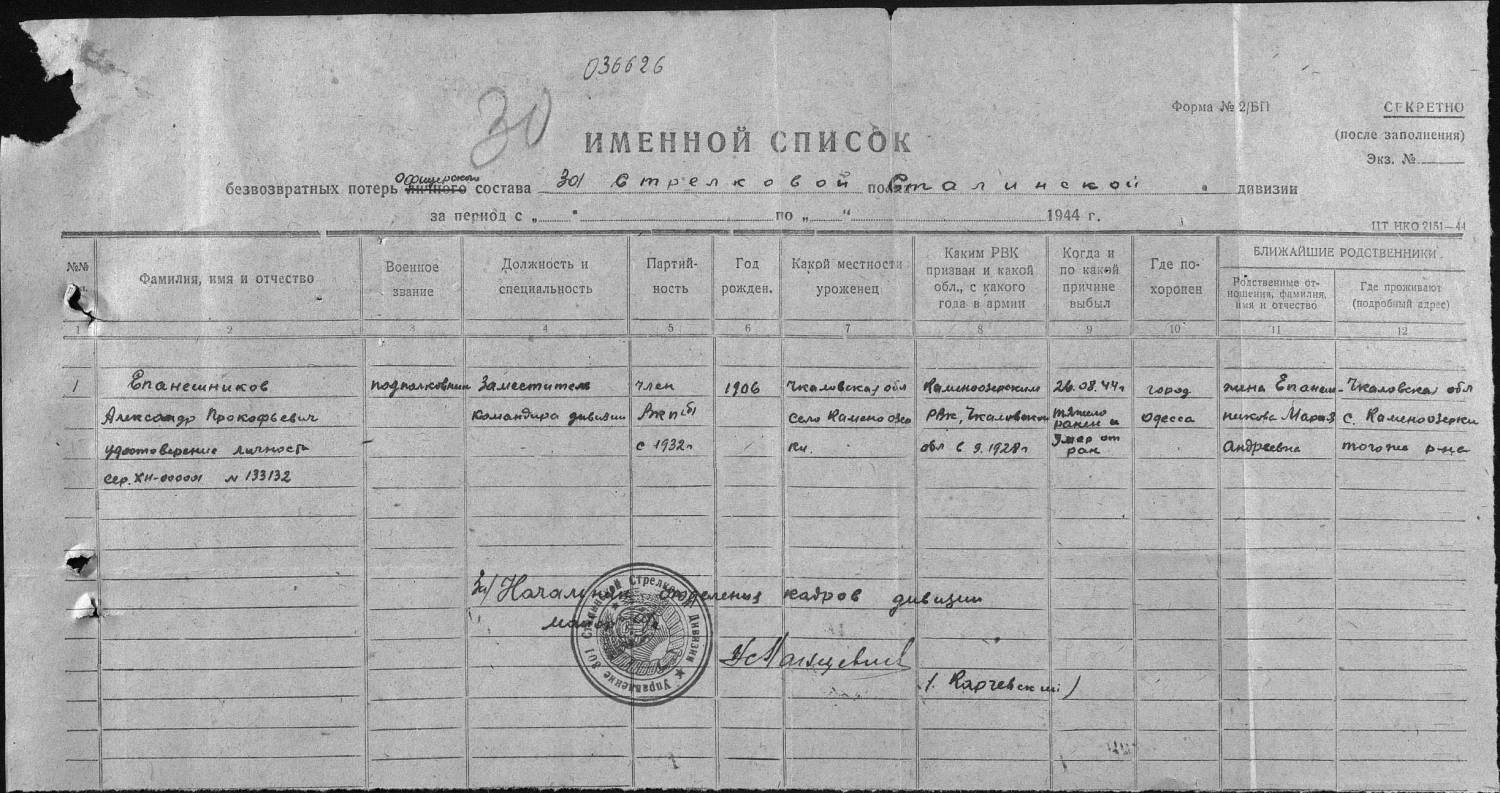 036626
30
Форма № 2/БП
СЕКРЕТНО
(после заполнения)
Экз. №
ИМЕННОЙ СПИСОК
Офицерского
безвозвратных потерь личного состава 301 Стрелковой Сталинской дивизии
за период с „ " по „ " 1944 г.
ЦТ НКО 2151—44
№№
Фамилия, имя и отчество
Военное
звание
Должность и
специальность
Партий-
ность
Год
рожден.
Какой местности
уроженец
Каким РВК
призван и какой
обл., с какого
года в армии
Когда и
по какой
причине
выбыл
Где по-
хоронен
БЛИЖАЙШИЕ РОДСТВЕННИКИ
Родственные от-
ношения, фамилия,
имя и отчество
Где проживают
(подробный адрес)
1 2 3 4 5 6 7 8 9 10 11 12
1
Епанешников
Александр Прокофьевич
удостоверение личности
сер. ХН-000001 № 133132
подполковник
Заместитель
командира дивизии
член
ВКП(б)
с 1932г
1906
Чкаловская обл
село Каменоозер
ки.
Каменоозерским
РВК, Чкаловской
обл с 9.1928г
26.08.44г
тяжело
ранен и
умер от
ран
город
Одесса
жена Епанеш-
никова Мария
Андреевна
Чкаловская обл
с. Каменоозерки
того же р-на
Начальник отделения кадров дивизии
майор
(Карчевский)
Управление 301 Сталинской Стрелковой Дивизии